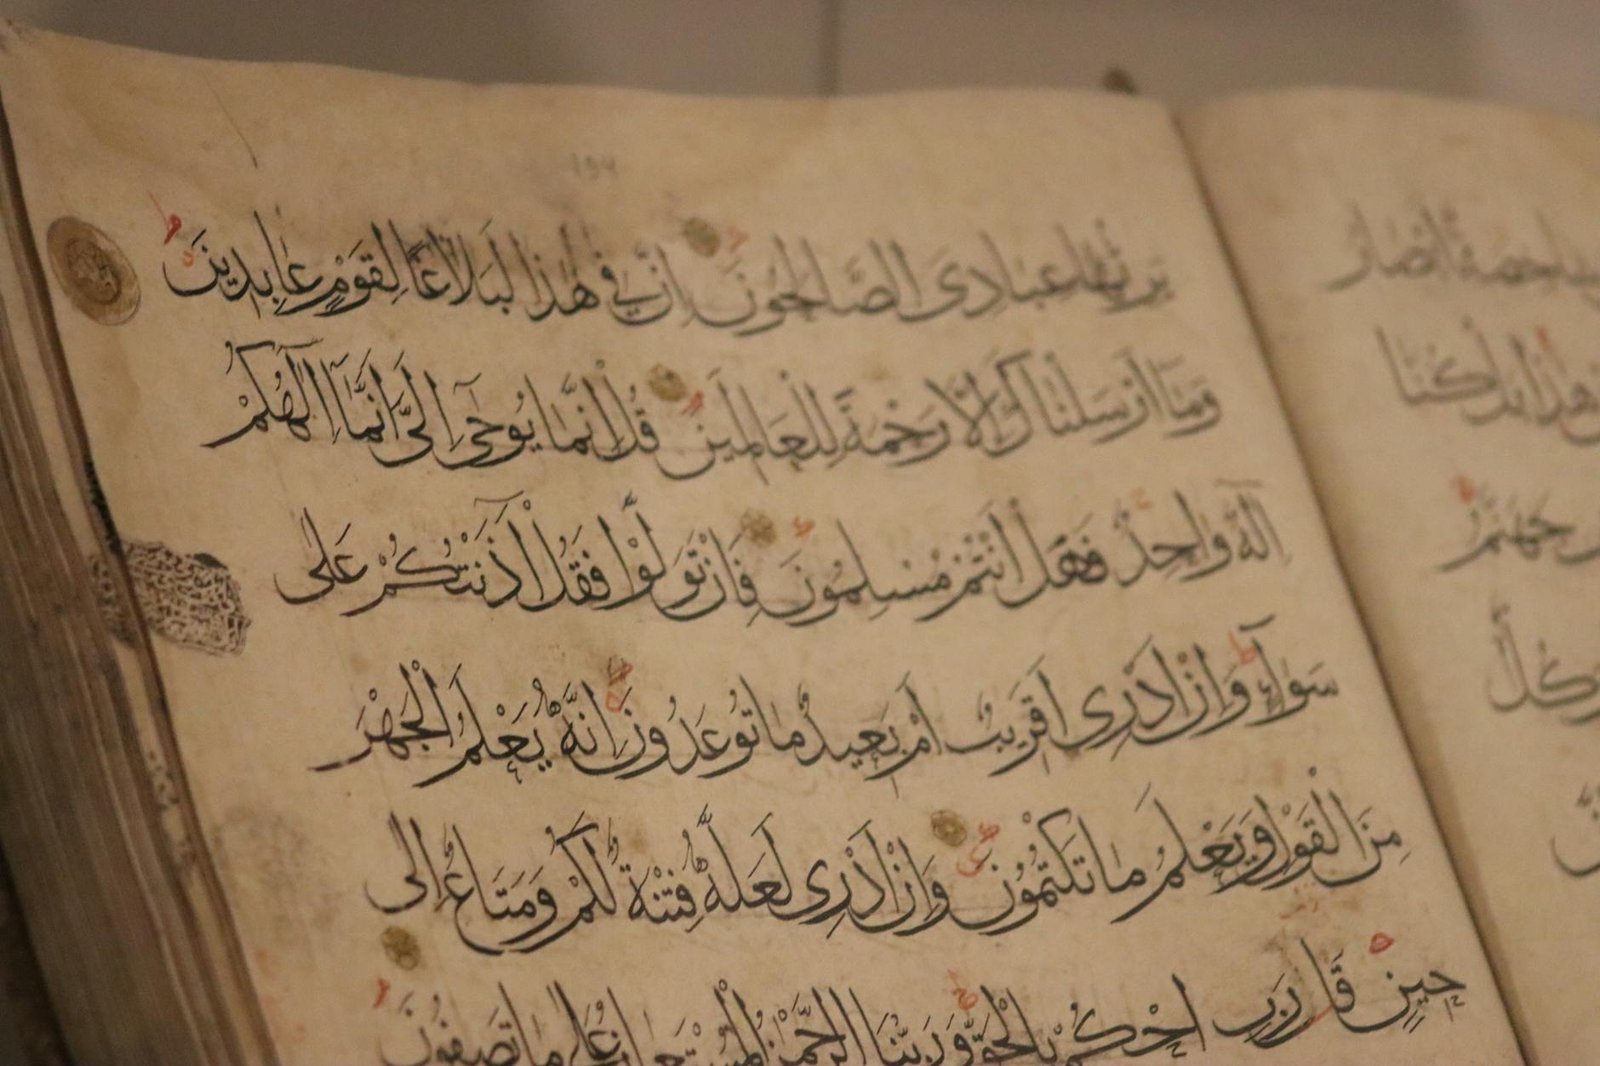 شاخصة ابصار
هذا بل كنا
جهنم
وكل
يَرِثُهَا عِبَادِىَ الصَّالِحُونَ اِنَّ فِي هٰذَا لَبَلَاغًا لِقَوْمٍ عَابِدِينَ
وَمَآ اَرْسَلْنَاكَ اِلَّا رَحْمَةً لِلْعَالَمِينَ قُلْ اِنَّمَا يُوحَىٓ اِلَىَّ اَنَّمَآ اِلٰهُكُمْ
اِلٰهٌ وَاحِدٌ فَهَلْ اَنْتُمْ مُسْلِمُونَ فَاِنْ تَوَلَّوْا فَقُلْ اٰذَنْتُكُمْ عَلٰى
سَوَآءٍ وَاِنْ اَدْرِىٓ اَقَرِيبٌ اَمْ بَعِيدٌ مَا تُوعَدُونَ اِنَّهُ يَعْلَمُ الْجَهْرَ
مِنَ الْقَوْلِ وَيَعْلَمُ مَا تَكْتُمُونَ وَاِنْ اَدْرِى لَعَلَّهُ فِتْنَةٌ لَكُمْ وَمَتَاعٌ اِلٰى
حِينٍ قَالَ رَبِّ احْكُمْ بِالْحَقِّ وَرَبُّنَا الرَّحْمٰنُ الْمُسْتَعَانُ عَلٰى مَا تَصِفُونَ